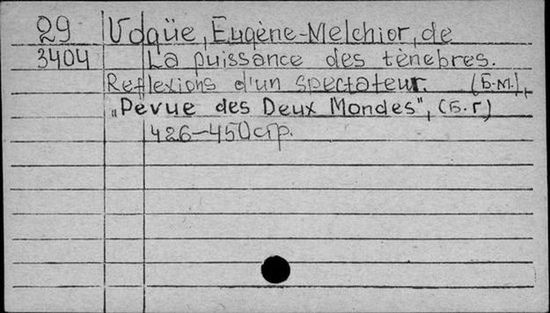 29 Vogüe, Eugène-Melchior, de
3404 La puissance des tènebres.
Reflexions d'un spectateur. (Б.м.),
„Revue des Deux Mondes", (Б.г)
426-450стр.